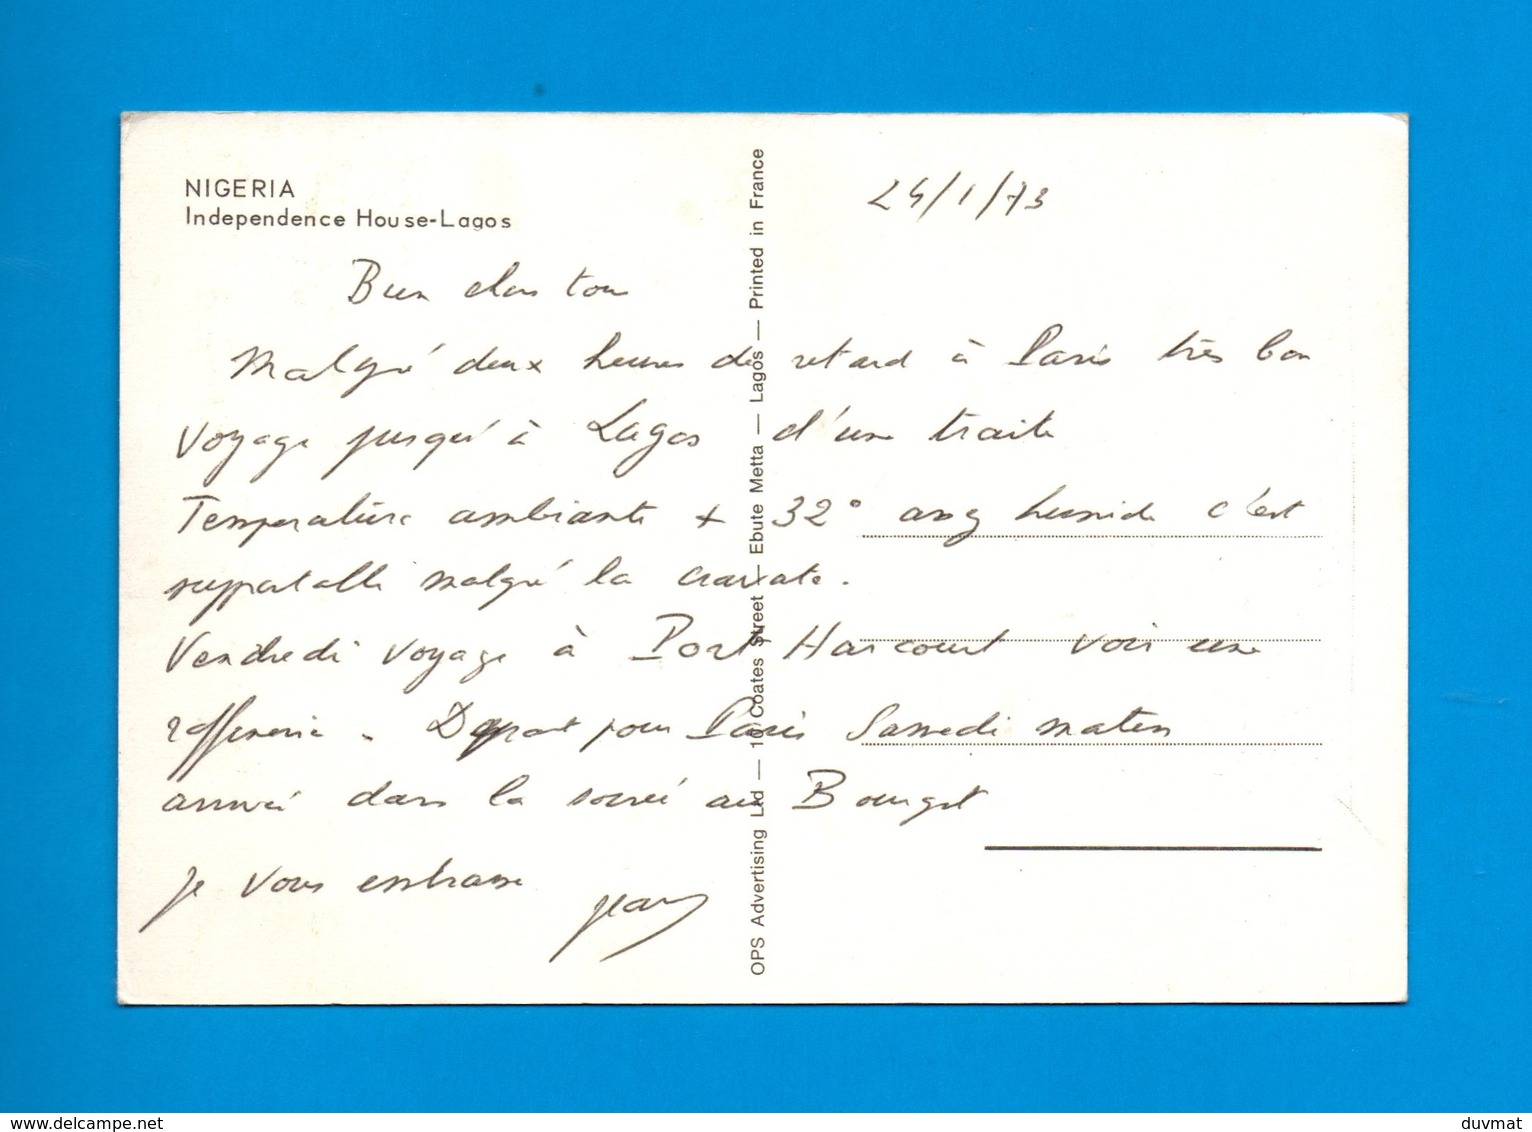 NIGERIA
Independence House-Lagos
24/1/73
Bien chers tous
Malgré deux heures de retard à Paris très bon
voyage jusqu'à Lagos d'une traite
Température ambiante + 32° assez humide c'est
supportable malgré la cravate.
Vendredi voyage à Port Harcourt voir une
raffinerie. Départ pour Paris Samedi matin
arrivée dans la soirée au Bourget
je vous embrasse
Jean
OPS Advertising Ltd — 10 Coates Street — Ebute Metta — Lagos — Printed in France
duvmat